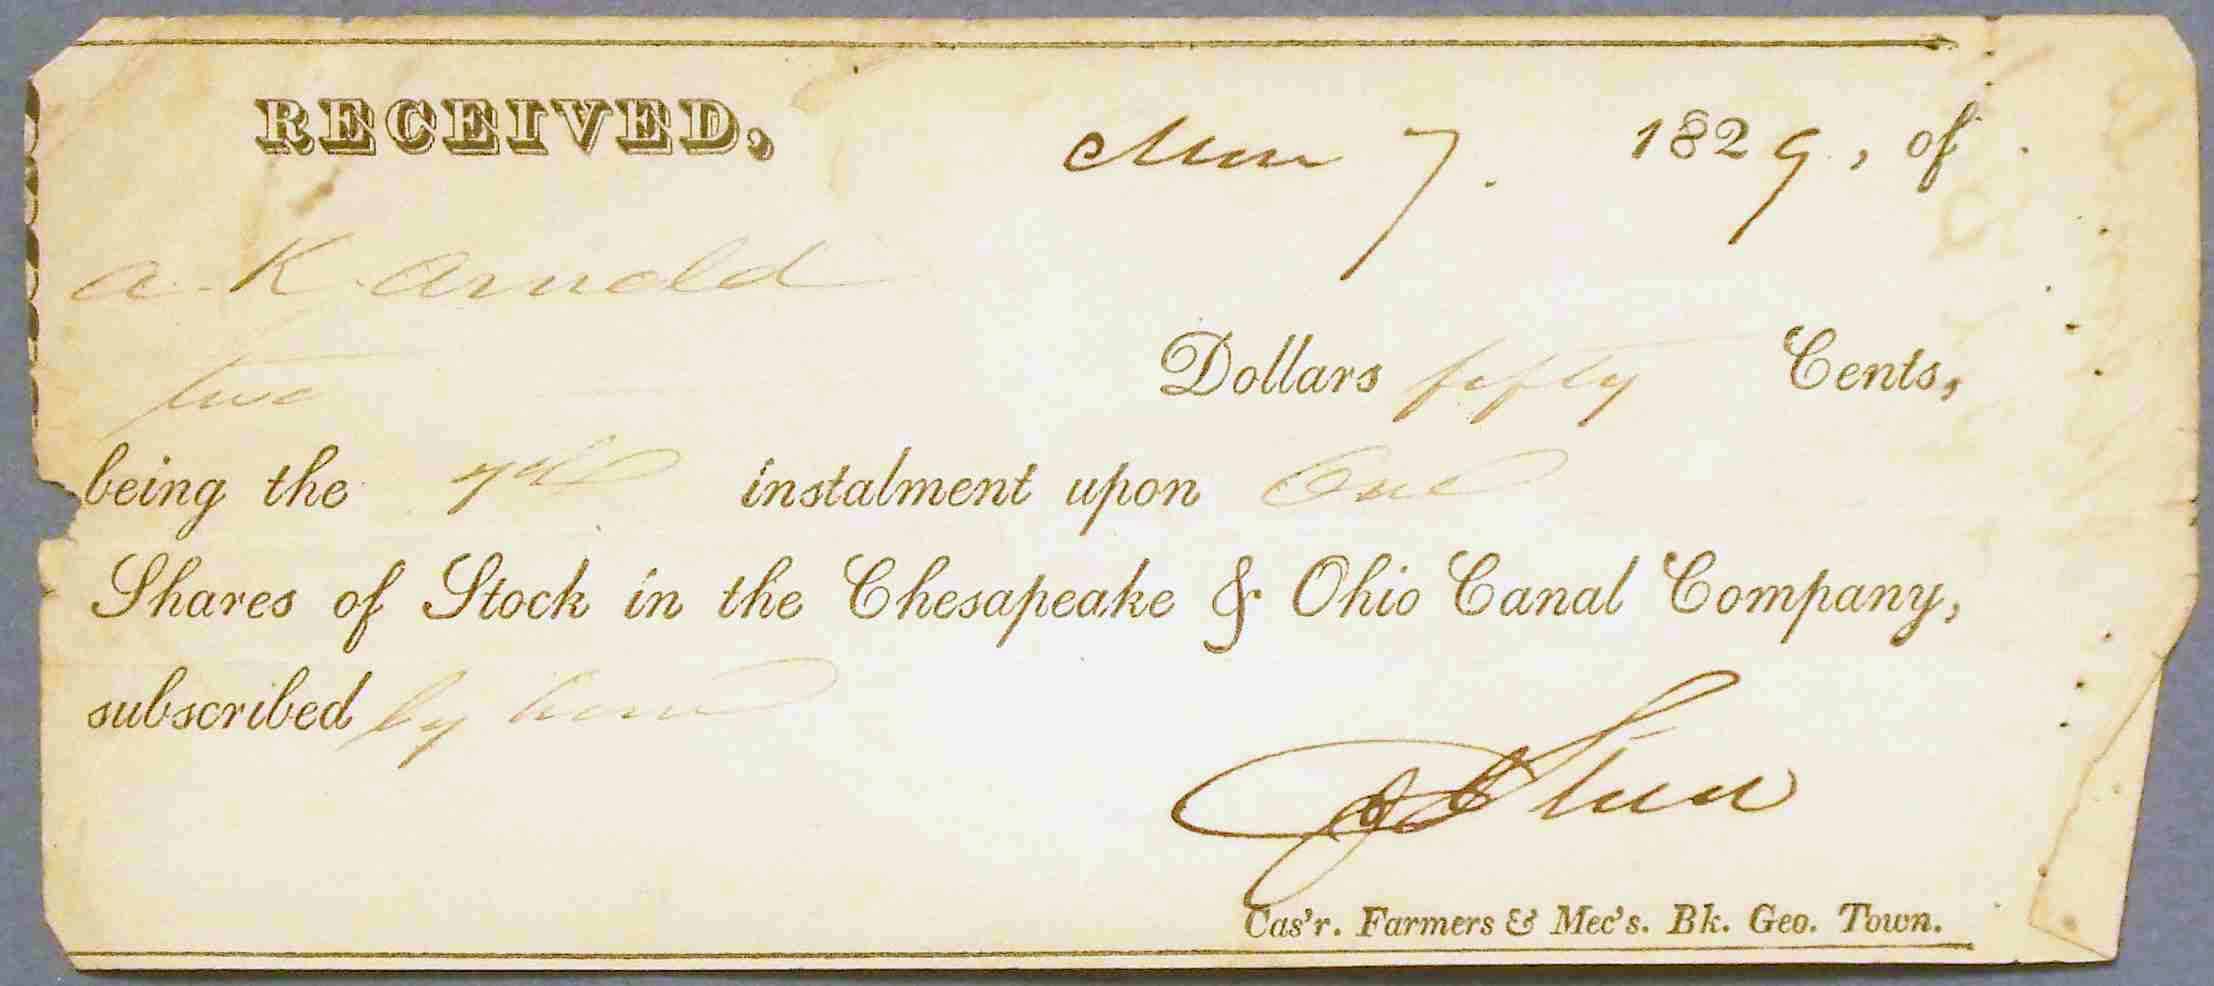 RECEIVED, 7. 1829, of
A. K. Arnold
two Dollars fifty Cents,
being the instalment upon One
Shares of Stock in the Chesapeake & Ohio Canal Company,
subscribed by
Cas'r. Farmers & Mec's. Bk. Geo. Town.